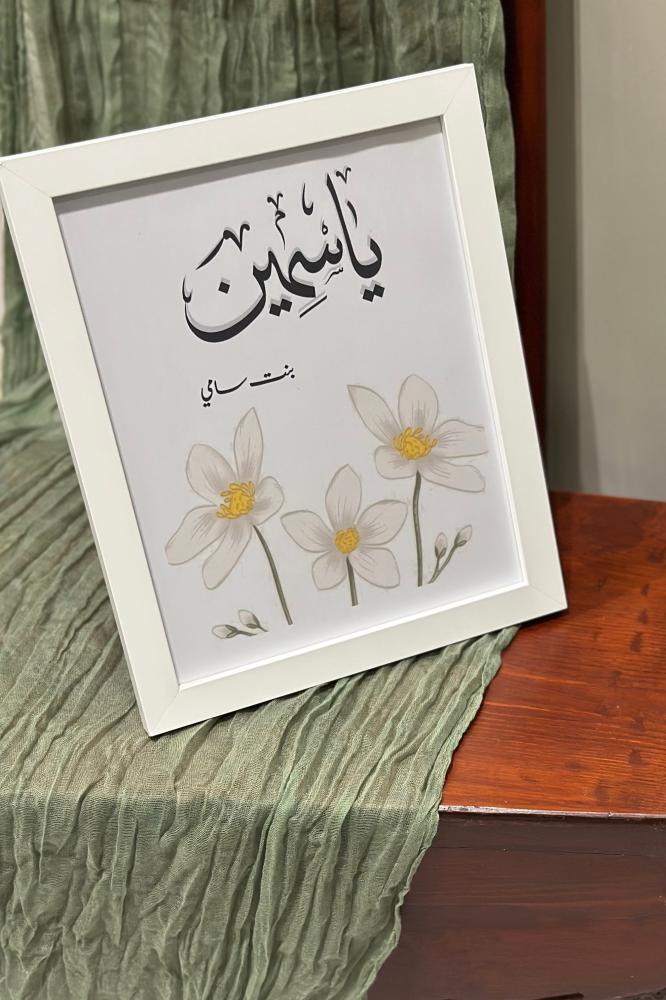 ياسمين
بنت سامي